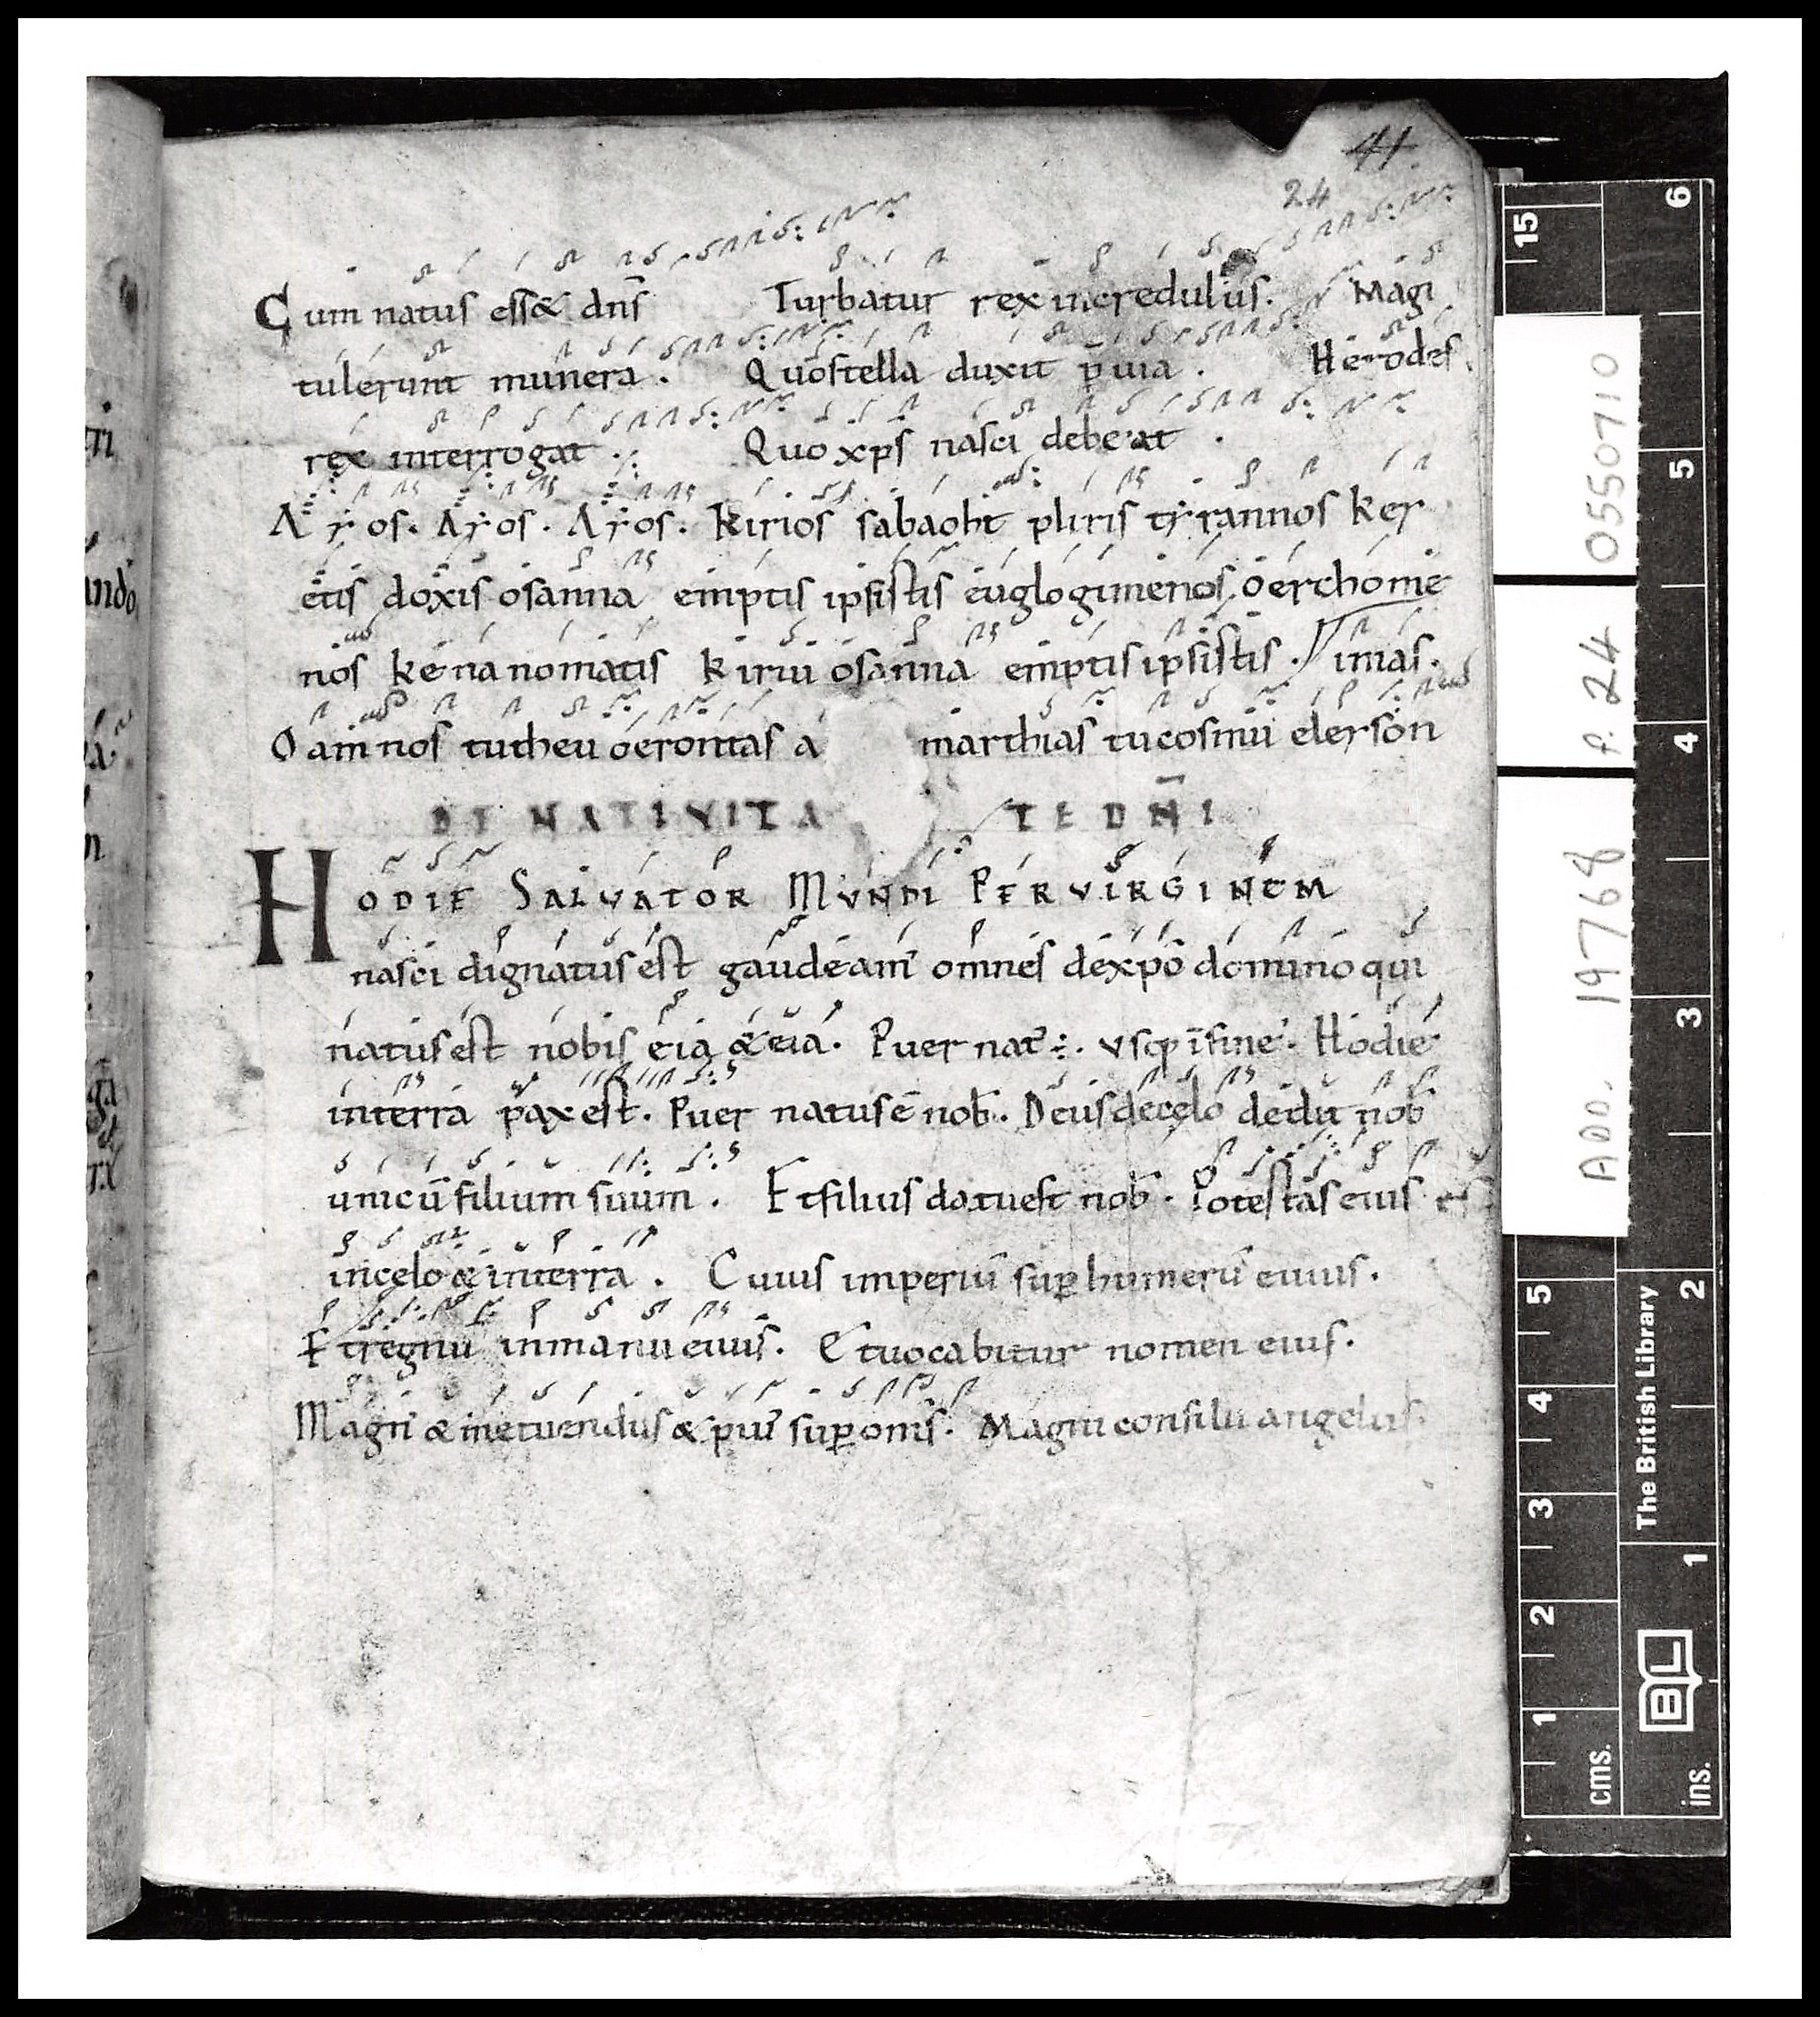 41
24
Cum natus ess& dn̄s Turbatur rex incredulus. Magi
tulerunt munera. Quos stella duxit p̄uia. Herodes
rex interrogat. Quo xp̄s nasci debeat.
Ayos. Ayos. Ayos. kirios sabaoht pliris tyrannos ker
etis doxis osanna einptis ipsistis euglogimenos oerchome
nos kenanomatis kiriu osanna einptis ipsistis. imas.
O amnos tutheu oerontas a marthias tucosmu eleison
DE NATIVITA TE DN̄I
HODIE SALVATOR MVNDI PER VIRGINEM
nasci dignatus est gaudeam̄ omnes dexp̄o domino qui
natus est nobis eia & eia. Puer nat̄. vsq; īfine. Hodie
interra pax est. Puer natus ē nob. Deus decelo dedit nob
unicū filium suum. Et filius datuest nob. Potestas eius
incelo & interra. Cuius imperiū sup humerū eiuus.
Et regnū inmanu eiuus. Et uocabitur nomen eius.
Magn̄ & metuendus & piū sup om̄s. Magni consilii angelus.
ADD. 19768 f. 24 0550710
The British Library
BL
cms. 1 2 3 4 5 15
ins. 1 2 3 4 5 6